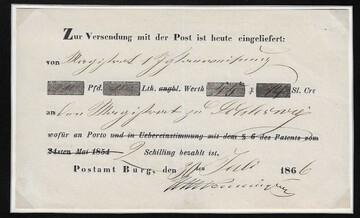 Zur Versendung mit der Post ist heute eingeliefert:
von Magistrat
Pfd. Lth. angbl. Werth ß Sl. Crt
an den Magistrat zu Schleswig
wofür an Porto und in Uebereinstimmung mit dem § 6 des Patents vom
24sten Mai 1854 2 Schilling bezahlt ist.
Postamt Burg, den 30sten Juli 1866